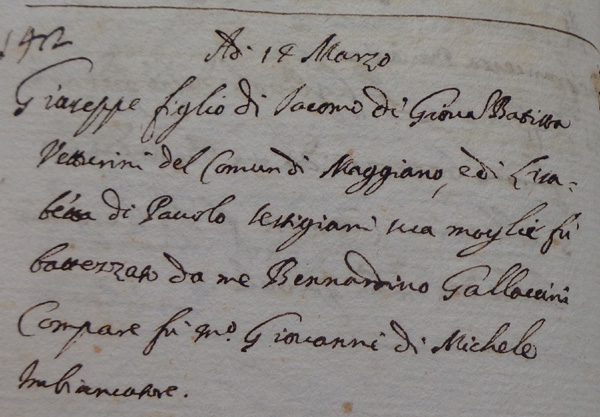 Adi 14 Marzo
Giuseppe figlio di Iacomo di Giova Batista
Vetturini del Comun di Maggiano, e di Lisa=
betta di Pavolo sua moglie fù
battezzato da me Bernardino Gallaccini
Compare fù mº. Giovanni di Michele
Imbiancatore.